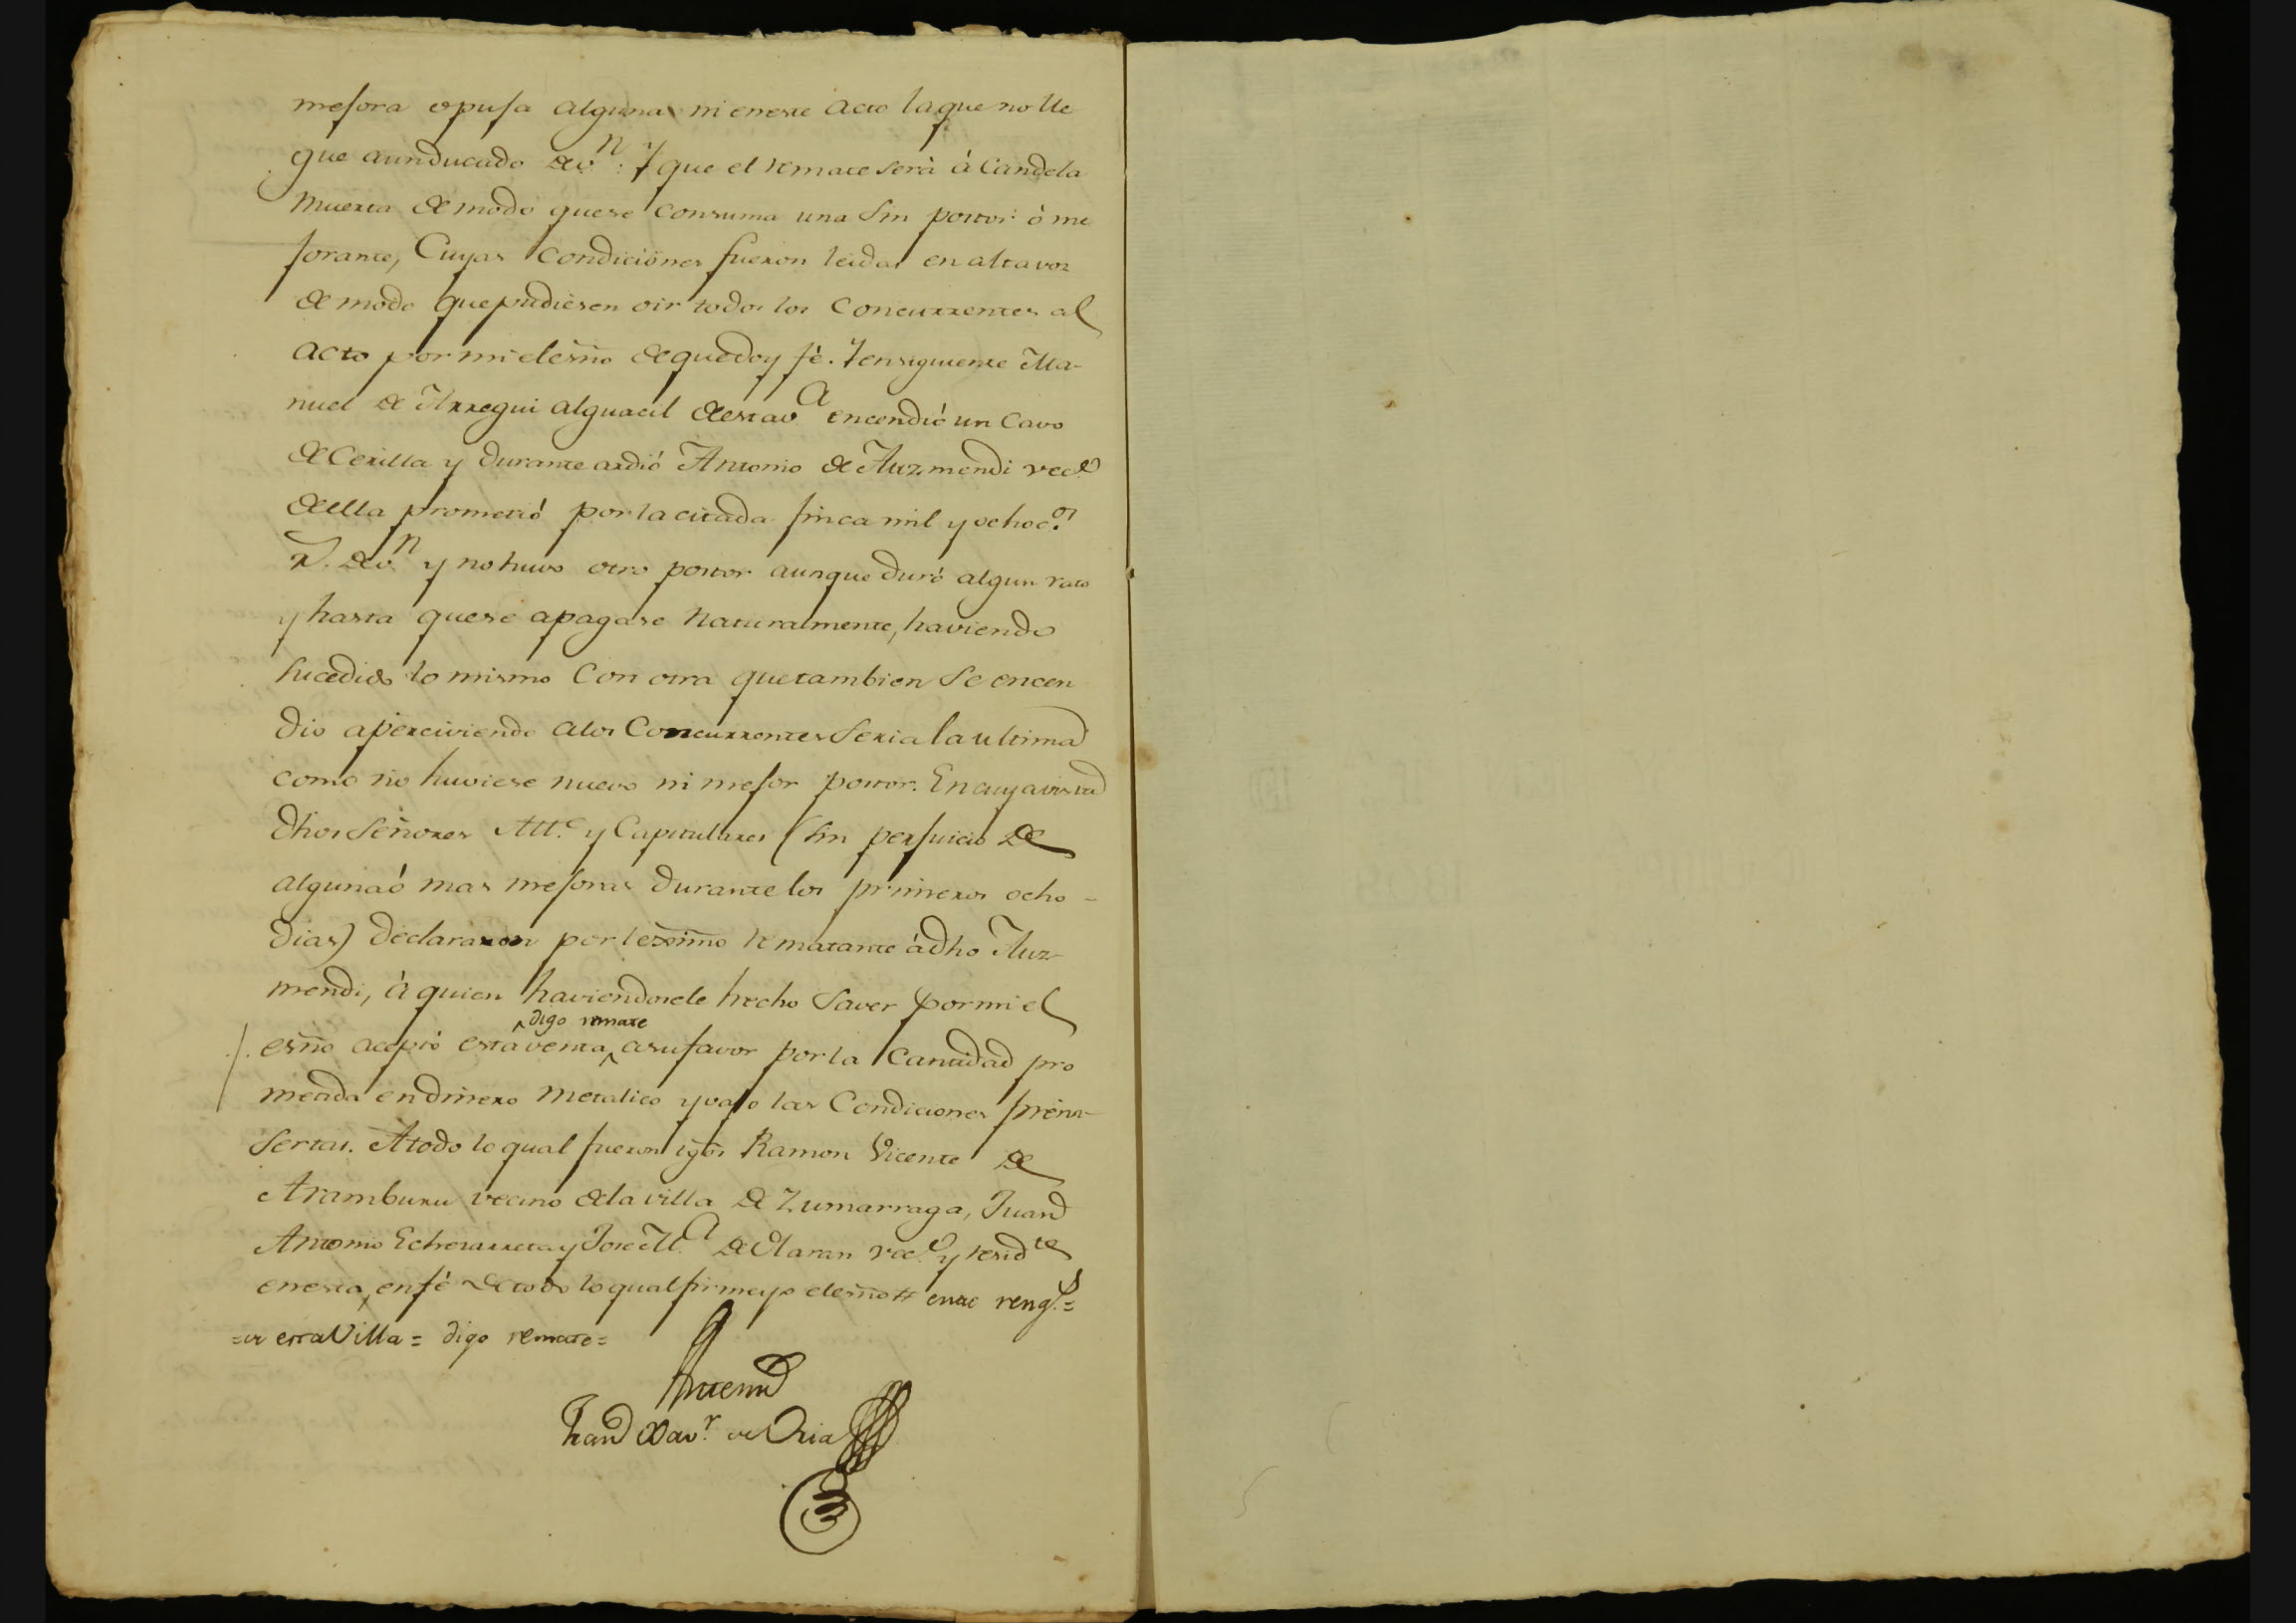 mejora o puja alguna ni eneste acto laque no lle
gue aunducado dev.n Y que el remate será á Candela
Muerta de modo quese consuma una sin postor ó me
jorante, Cuyas Condiciones fueron leidas en altavoz
de modo que pudiesen oir todos los Concurrentes al
acto por mi elesño de que doy fé. Y ensiguiente Ma-
nuel de Arregui alguacil de estav.a encendió un Cavo
de Cerilla y durante ardió Antonio de Auzmendi vec.o
de ella prometió por la citada finca mil y ochoc.os
r.s dev.n y no huvo otro postor aunque duró algun rato
y hasta quese apagase naturalmente, haviendo
sucedido lo mismo Con otra que tambien se encen
dio aperciviendo alos Concurrentes seria la ultima
como no huviese nuevo ni mejor postor. En cuya vista
dhos Señores Alc.e y Capitulares (sin perjuicio de
alguna ó mas mejoras durante los primeros ocho -
dias) declararon por lexitimo rematante á dho Auz-
mendi, á quien haviendosele hecho saver por mi el
digo remate
esño aceptó esta venta ^ asu favor por la Cantidad pro
metida en dinero metalico y vajo las Condiciones prein-
sertas. A todo lo qual fueron tgos Ramon Vicente de
Aramburu vecino de la villa de Zumarraga, Juan
Antonio Echevarreta y Jose M.a de Olaran vec.o y resid.tes
en esta, en fé de todo lo qual firme yo el esño = entre rengl.s =
= de esta Villa = digo remate =
Ante mi
Juan Xav.r de Oria